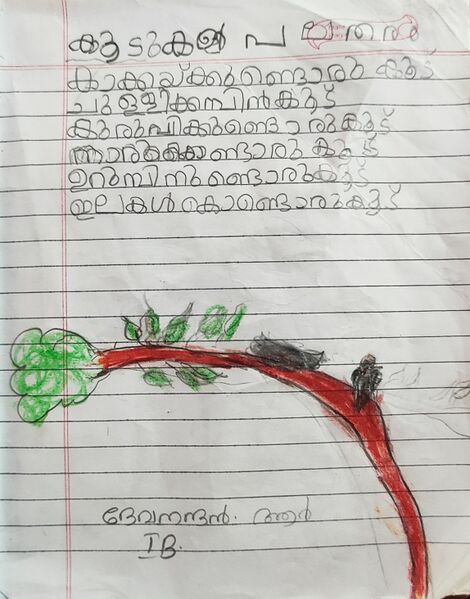 കൂടുകൾ പലതരം
കാക്കയ്ക്കുണ്ടൊരു കൂട്
ചുള്ളിക്കമ്പിൻകൂട്
കുരുവിക്കുണ്ടൊരുകൂട്
നാരുകൊണ്ടൊരു കൂട്
ഉറുമ്പിനുണ്ടൊരുകൂട്
ഇലകൾകൊണ്ടൊരുകൂട്
ദേവനന്ദൻ. ആർ
I B.